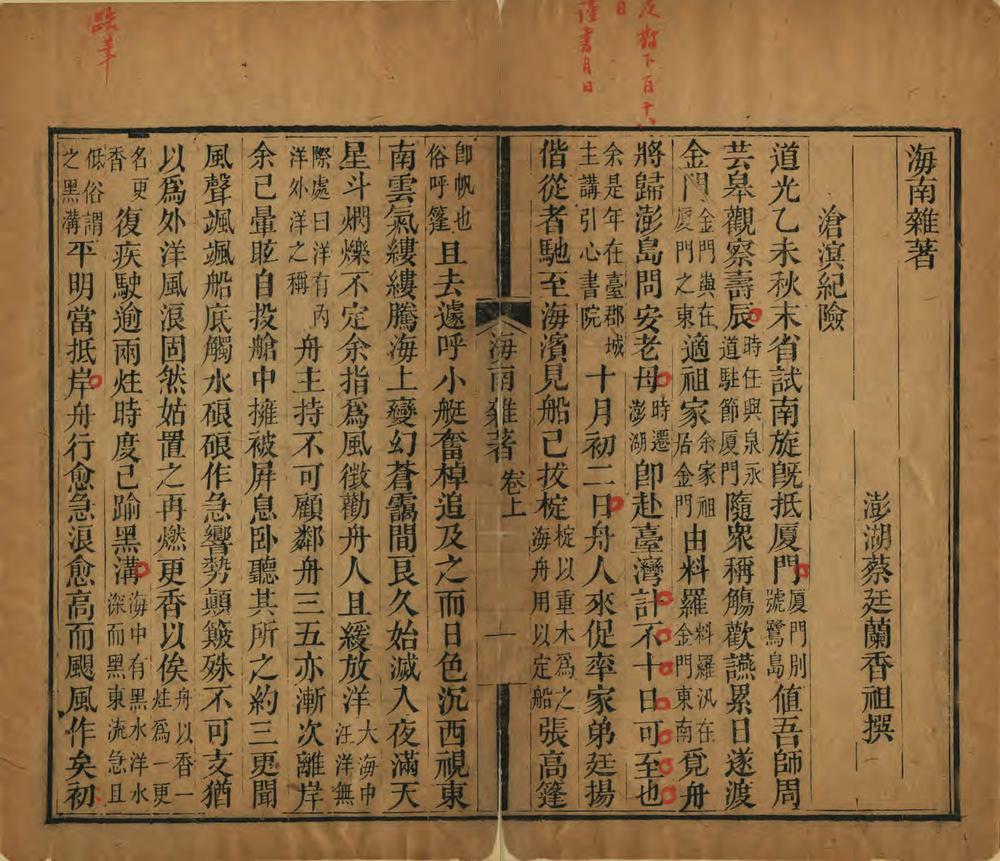 海南雜著
澎湖蔡廷蘭香祖撰
滄溟紀險
道光乙未秋末省試南旋旣抵厦門厦門別號鷺島値吾師周
芸皋觀察壽辰時任興泉永道駐節厦門隨衆稱觴歡讌累日遂渡
金門金門與在厦門之東適祖家余家祖居金門由料羅料羅汛在金門東南覓舟
將歸澎島問安老母時遷澎湖卽赴臺灣計不十日可至也
余是年在臺郡城主講引心書院十月初二日舟人來促率家弟廷揚
偕從者馳至海濱見船已拔椗椗以重木爲之海舟用以定船張高篷
海南雜著 卷上 一
卽帆也俗呼篷且去遽呼小艇奮棹追及之而日色沉西視東
南雲氣縷縷騰海上變幻蒼靄間良久始滅入夜滿天
星斗爓爍不定余指爲風徵勸舟人且緩放洋大海中汪洋無
際處曰洋有內洋外洋之稱舟主持不可顧鄰舟三五亦漸次離岸
余已暈眩自投艙中擁被屏息卧聽其所之約三更聞
風聲颯颯船底觸水硠硠作急響勢顛簸殊不可支猶
以爲外洋風浪固然姑置之再燃更香以俟舟以香一炷爲一更
名更香復疾駛逾兩炷時度已踰黑溝海中有黑水洋水深而黑東流急且
低俗謂之黑溝平明當抵岸舟行愈急浪愈高而颶風作矣初